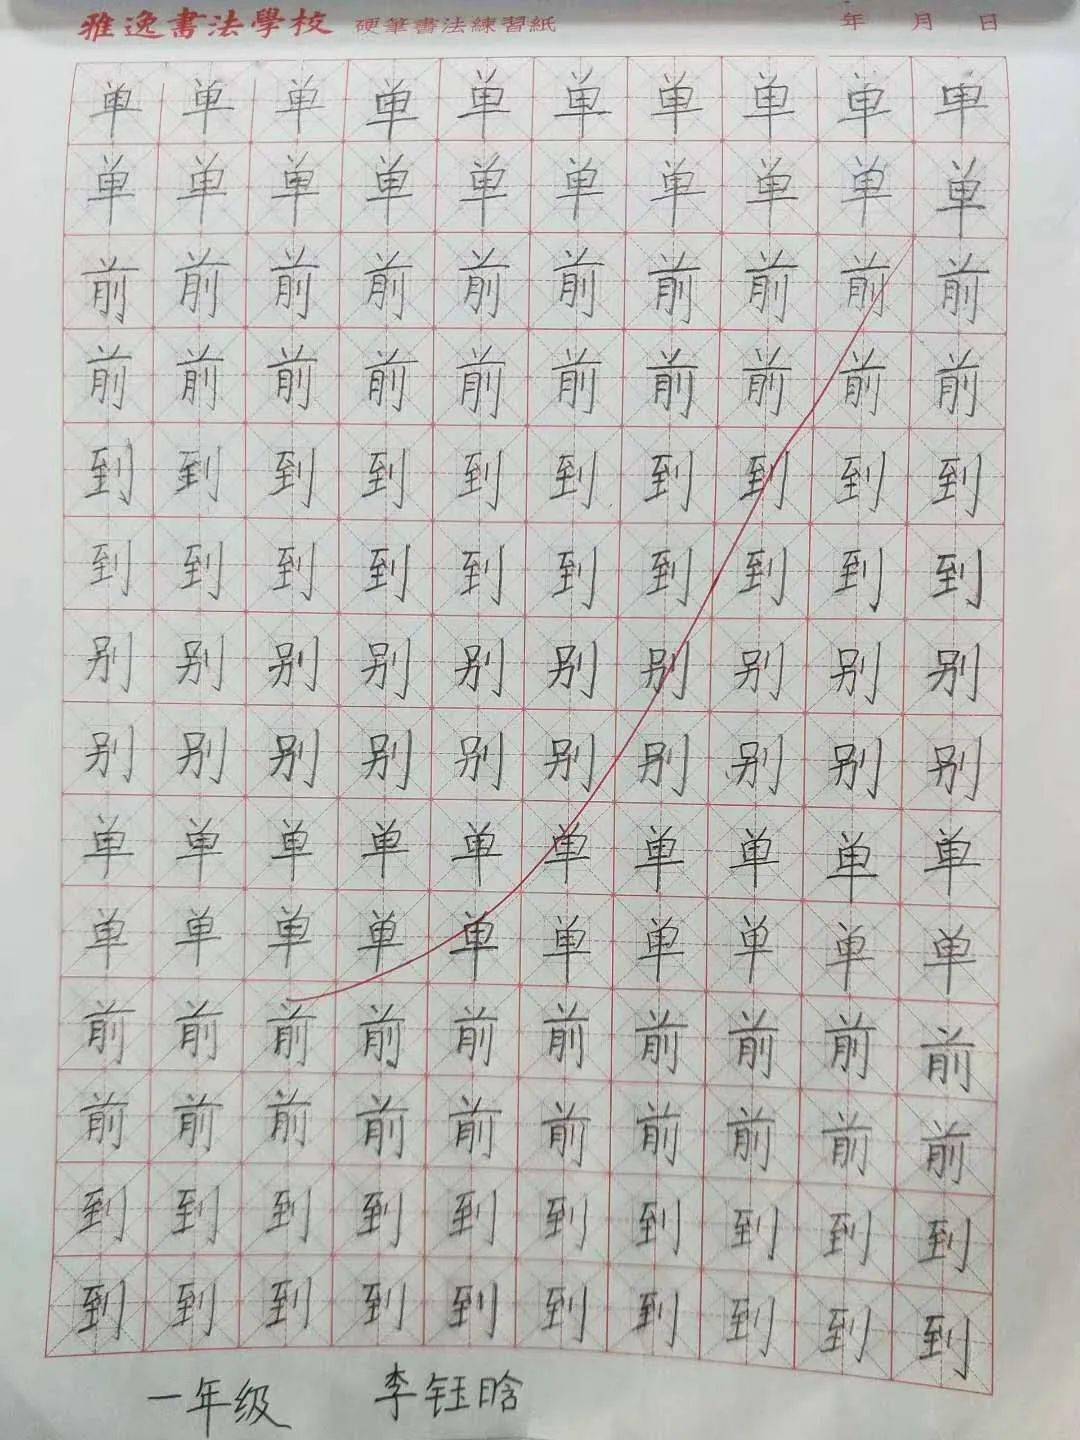 雅逸書法學校 硬筆書法練習紙 年 月 日
单单单单单单单单单单
单单单单单单单单单单
前前前前前前前前前前
前前前前前前前前前前
到到到到到到到到到到
到到到到到到到到到到
别别别别别别别别别别
别别别别别别别别别别
单单单单单单单单单单
单单单单单单单单单单
前前前前前前前前前前
前前前前前前前前前前
到到到到到到到到到到
到到到到到到到到到到
一年级 李钰晗